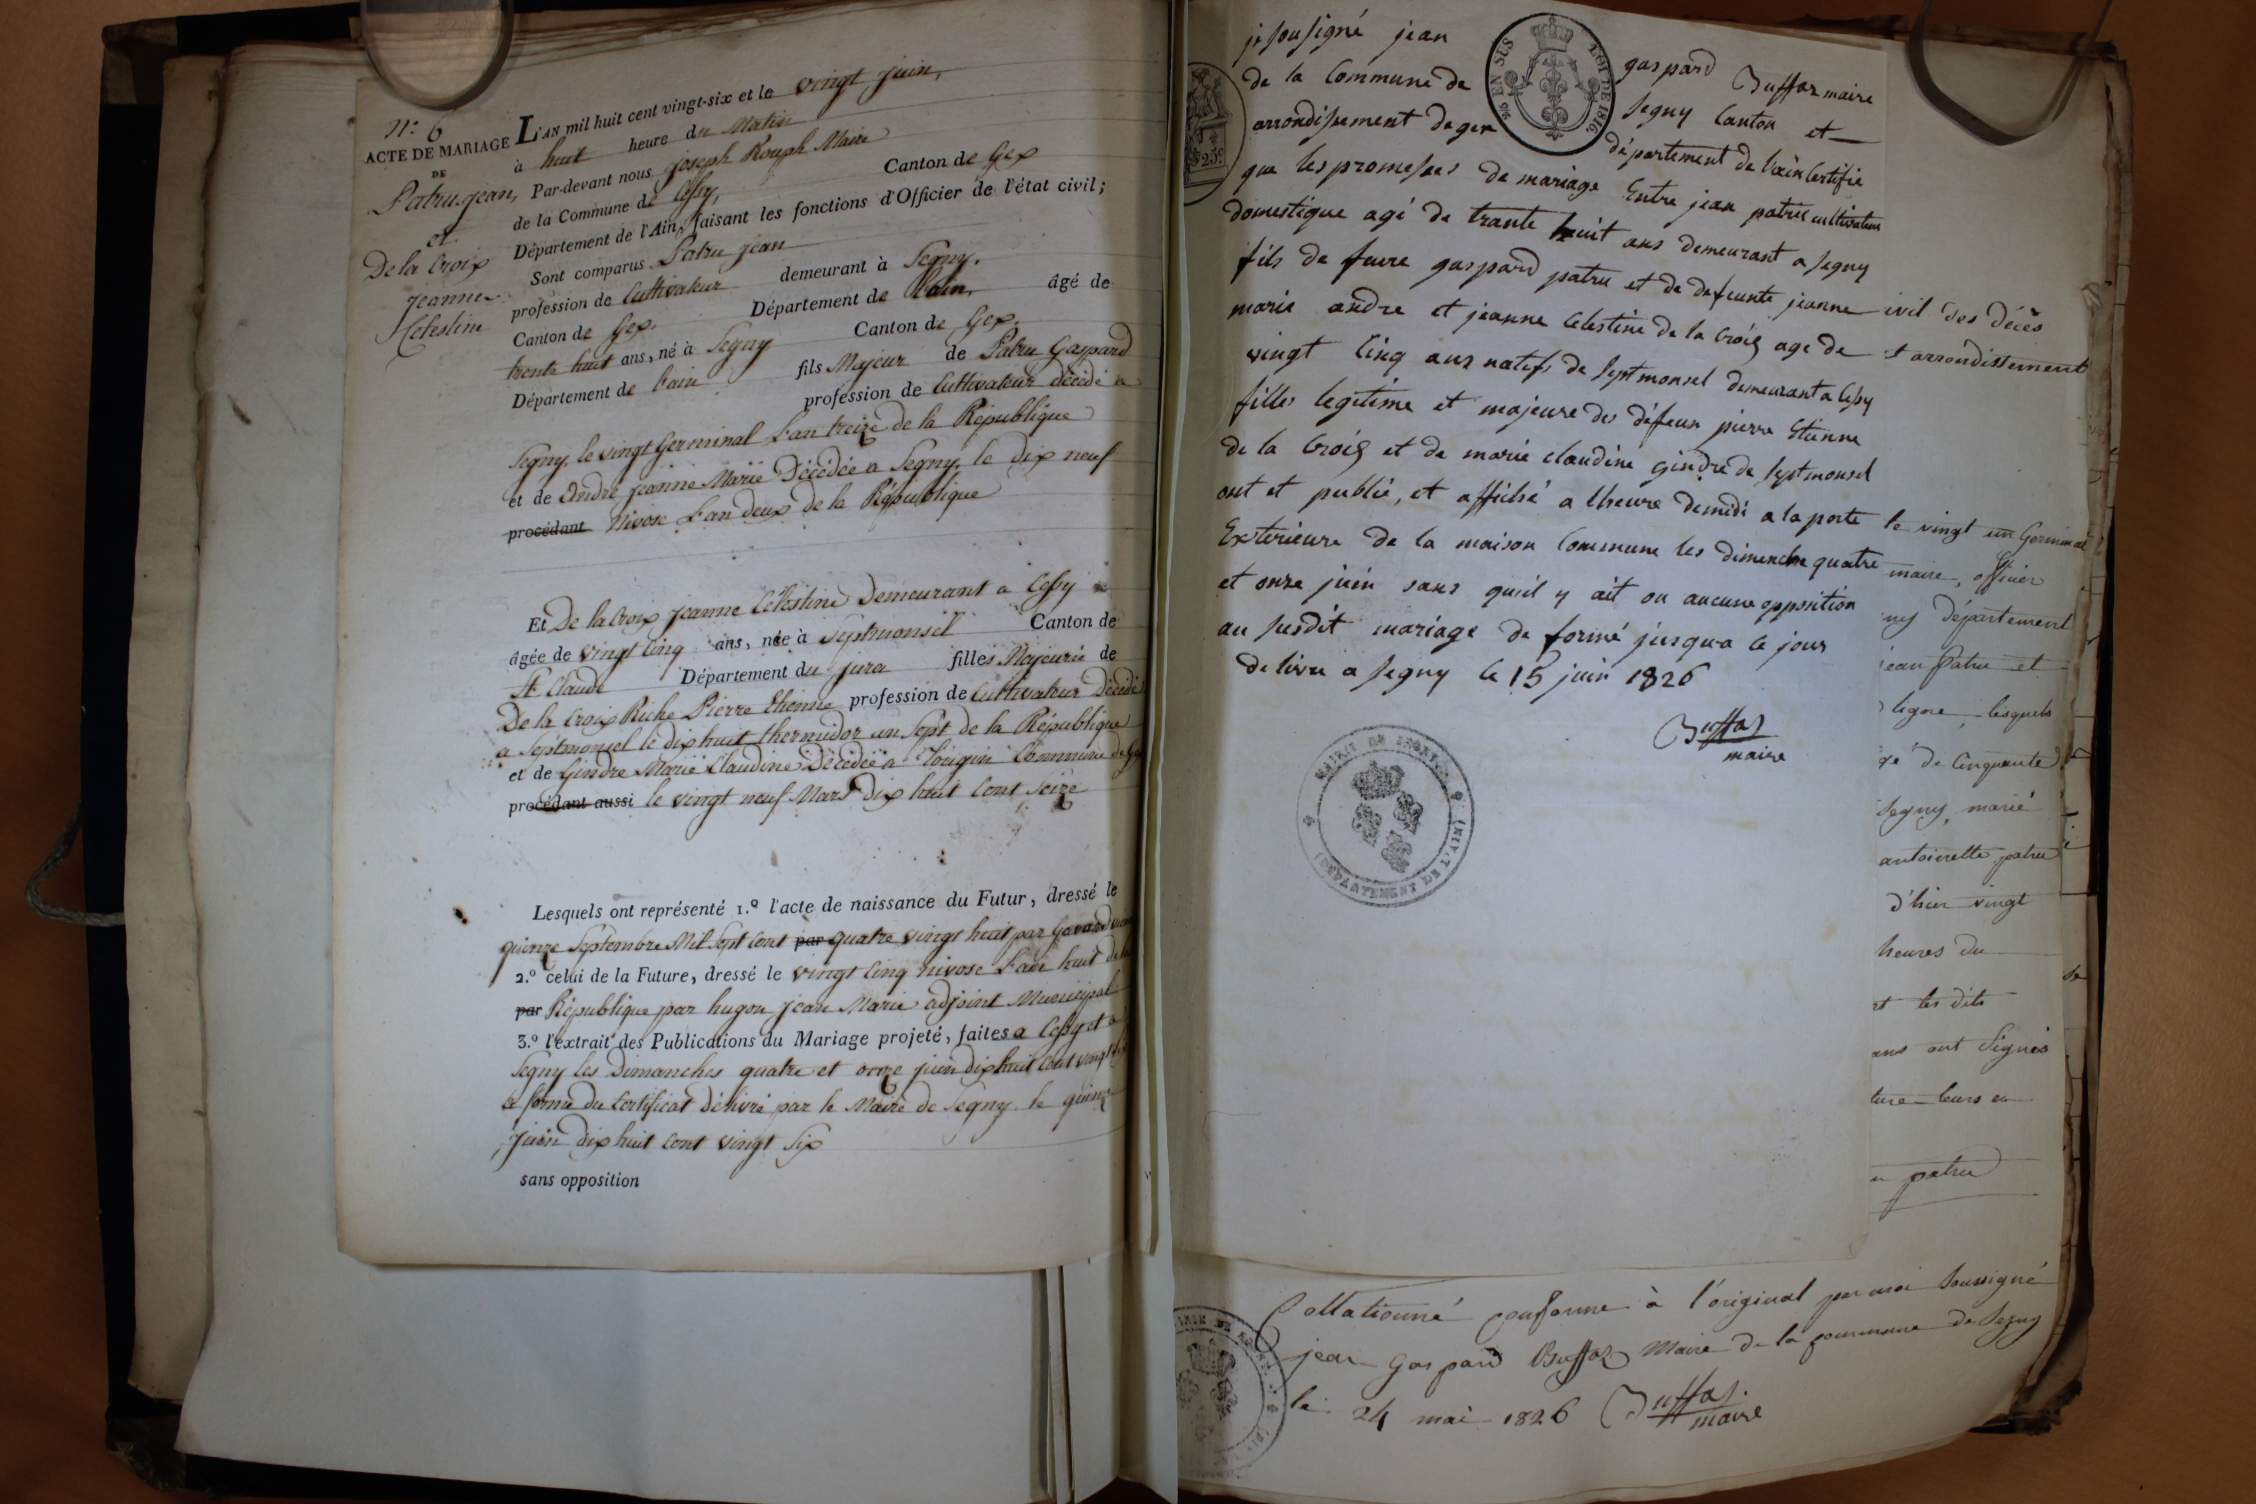 N.° 6
ACTE DE MARIAGE
DE
Patru Jean,
et
De la Croix
Jeanne
Célestine
L'AN mil huit cent vingt-six et le vingt juin,
à huit heure du Matin
Par-devant nous joseph Rouph Maire
de la Commune de Cessy, Canton de Gex
Département de l'Ain, faisant les fonctions d'Officier de l'état civil;
Sont comparus Patru jean
profession de Cultivateur demeurant à Segny,
Canton de Gex. Département de l'ain, âgé de
trente huit ans, né à Segny Canton de Gex.
Département de l'ain fils Majeur de Patru Gaspard
profession de Cultivateur décédé a
Segny, le vingt Germinal L'an treize de la République
et de André jeanne Marie Décédée a Segny, le dix neuf
procédant Nivose L'an deux de la République
Et De la Croix Jeanne Célestine Demeurant a Cessy
âgée de vingt Cinq ans, née à Septmonsel Canton de
St Claude Département du jura filles Majeure de
De la Croix Riche Pierre Etienne profession de Cultivateur Décédé
a Septmonsel le dix huit thermidor an Sept de la République
et de Gindre Marie Claudine Décédée a Commune de
procédant aussi le vingt neuf Mars dix huit Cent Seize
Lesquels ont représenté 1.° l'acte de naissance du Futur, dressé le
quinze Septembre Mil Sept Cent par quatre vingt huit par
2.° celui de la Future, dressé le vingt Cinq nivose L'an huit de la
par République par hugon jean Marie adjoint Municipal
3.° l'extrait des Publications du Mariage projeté, faites a Cessy et a
Segny les Dimanches quatre et onze juin dix huit Cent vingt
a forme du Certificat délivré par le Maire de Segny le quinze
Juin dix huit Cent vingt Six
sans opposition
je sousigné jean gaspard Buffaz maire
de la Commune de Segny Canton et
arrondissement de gex département de l'ain Certifie
que les promesses de mariage Entre jean patru cultivateur
domestique agé de trante huit ans demeurant a segny
fils de feue gaspard patru et de defeunte jeanne
marie andre et jeanne Celestine de la Croix age de
vingt Cinq ans natife de Septmonsel demeurant a Cessy
filles legitime et majeure des défeun pierre Etienne
de la Croix et de marie claudine gindre de septmonsel
ont et publié, et affiché a lheure demidi a la porte
Exterieure de la maison Commune les dimenche quatre
et onze juin sans quil y ait ou aucune opposition
au susdit mariage de formé jusqua ce jour
delivré a segny le 15 juin 1826
Buffaz
maire
EN SUS
LOI DE 1816.
25c
MAIRIE DE SEGNY
DÉPARTEMENT DE L'AIN
ivil des décès
et arrondissement
le vingt un Germinal
maire, officier
ny département
jean Patru et
ligne lesquels
gé de Cinquante
Segny, marié
antoinette patru
d'hier vingt
heures du
et les dits
ans ont Signés
ture leurs en
patru
Collationné Conforme à l'original par moi Soussigné
jean Gaspard Buffaz Maire de la commune de Segny
le 24 mai 1826 Buffaz
maire